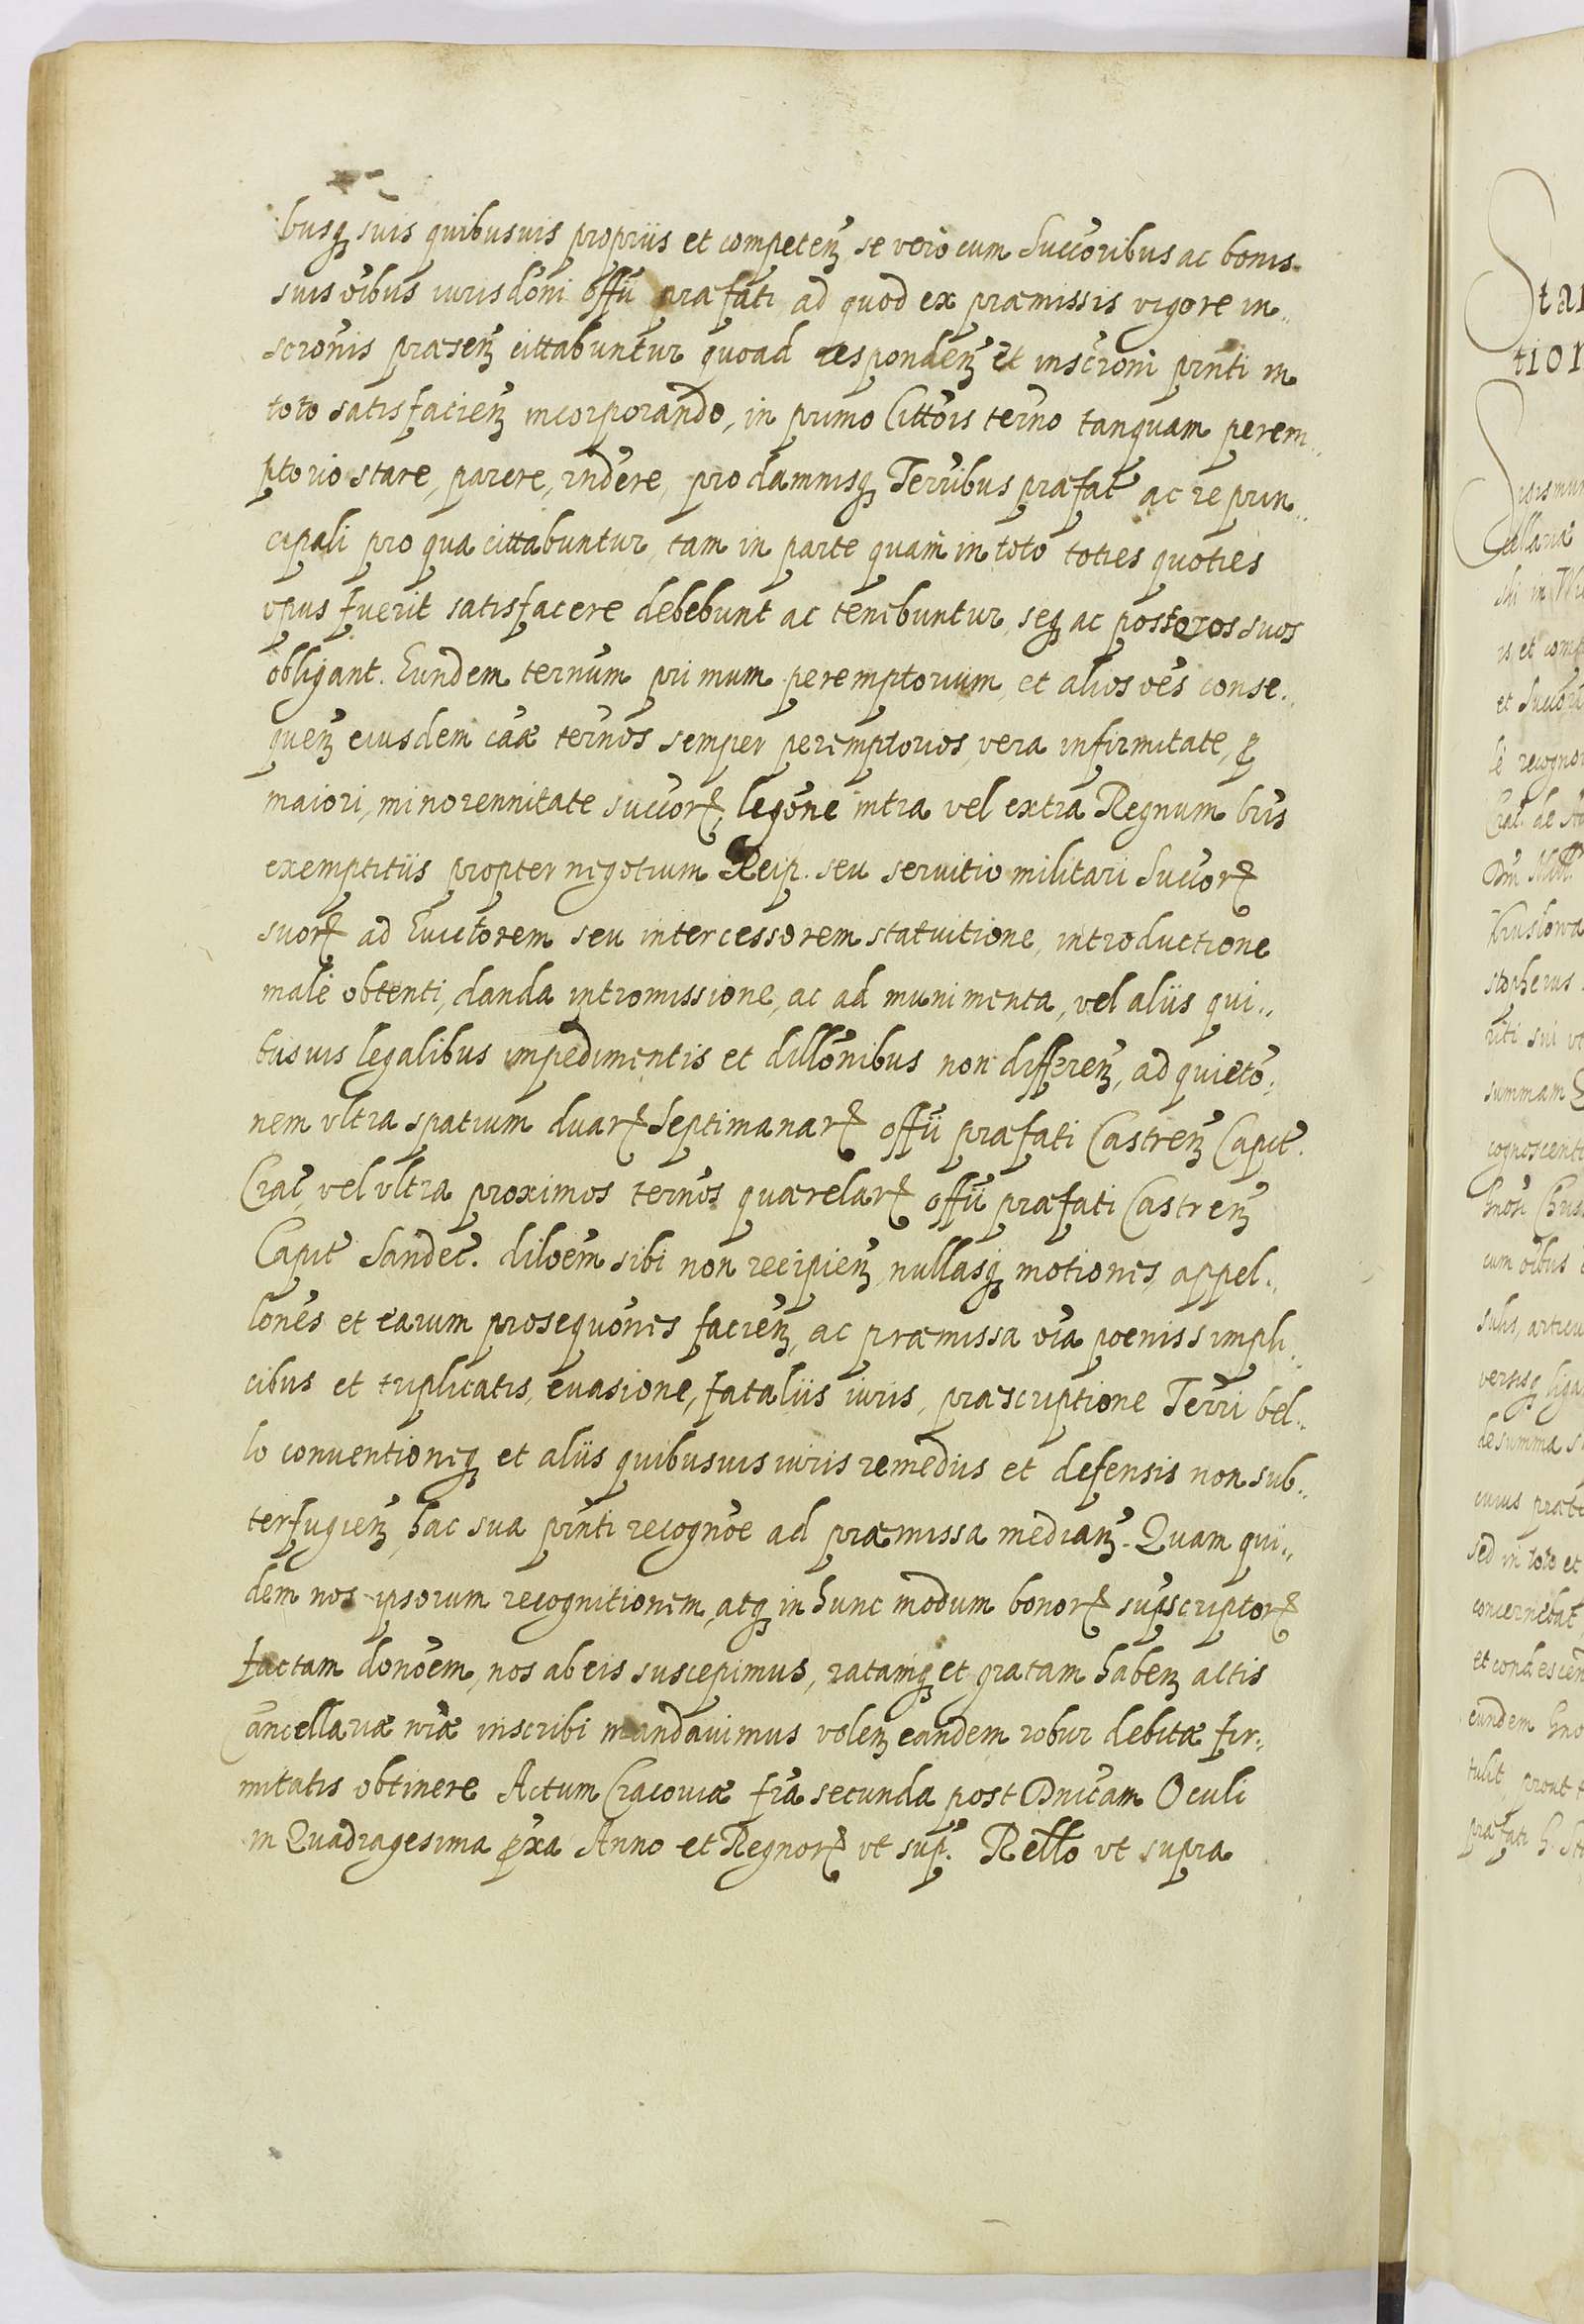 busq suis quibusuis propriis et competen se vero cum Succoribus ac bonis
suis oibus iurisdoni offii praefati ad quod ex praemissis vigore in„
scronis praesen cittabuntur quoad responden et inscroni pnti in
toto satisfacien incorporando, in primo Cittois terno tanquam perem„
ptorio stare, parere, rndere, pro damnisq Terribus praefat ac re prin„
cipali pro qua cittabuntur, tam in parte quam in toto toties quoties
opus fuerit satisfacere debebunt ac tenebuntur, seq ac possoros suos
obligant. Eundem ternum primum peremptorium et alios oes conse„
quen eiusdem caae ternos semper peremptorios, vera infirmitate, p
maiori, minorennitate succor, legone intra vel extra Regnum bris
exemptitiis propter negotium Reip. seu seruitio militari Succor
suor ad Euictorem seu intercessorem statuitione, introductione
male obtenti, danda intromissione, ac ad munimenta, vel aliis qui„
busuis legalibus impedimentis et dillonibus non differen, ad quieto„
nem vltra spatium duar Septimanar offii praefati Castren Capit.
Crac, vel vltra proximos ternos quaerelar offii praefati Castren
Capit Sandec. diloem sibi non recipien, nullasq motiones, appel„
lones et earum prosequones facien, ac praemissa oia poenis simpli„
cibus et triplicatis, euasione, fataliis iuris, praescriptione Terri bel„
lo conuentioneq et aliis quibusuis iuris remediis et defensis non sub„
terfugien, hac sua pnti recognoe ad praemissa median. Quam qui„
dem nos ipsorum recognitionem, atq in hunc modum bonor supscriptor
factam donoem, nos ab eis suscepimus, ratamq et gratam haben actis
Cancellariae nrae inscribi mandauimus volen eandem robur debitae fir„
mitatis obtinere Actum Cracouiae fria secunda post Dnicam Oculi
in Quadragesima pxa Anno et Regnor vt sup. Rello vt supra